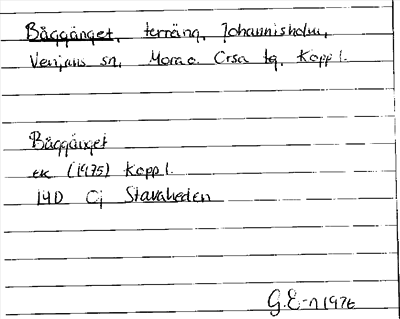 Båggänget, terräng, Johannisholm,
Venjans sn, Mora o. Orsa tg, Koppl.
Båggänget
ek (1975) Koppl.
14D Cj Stavaheden
G.E-n 1976